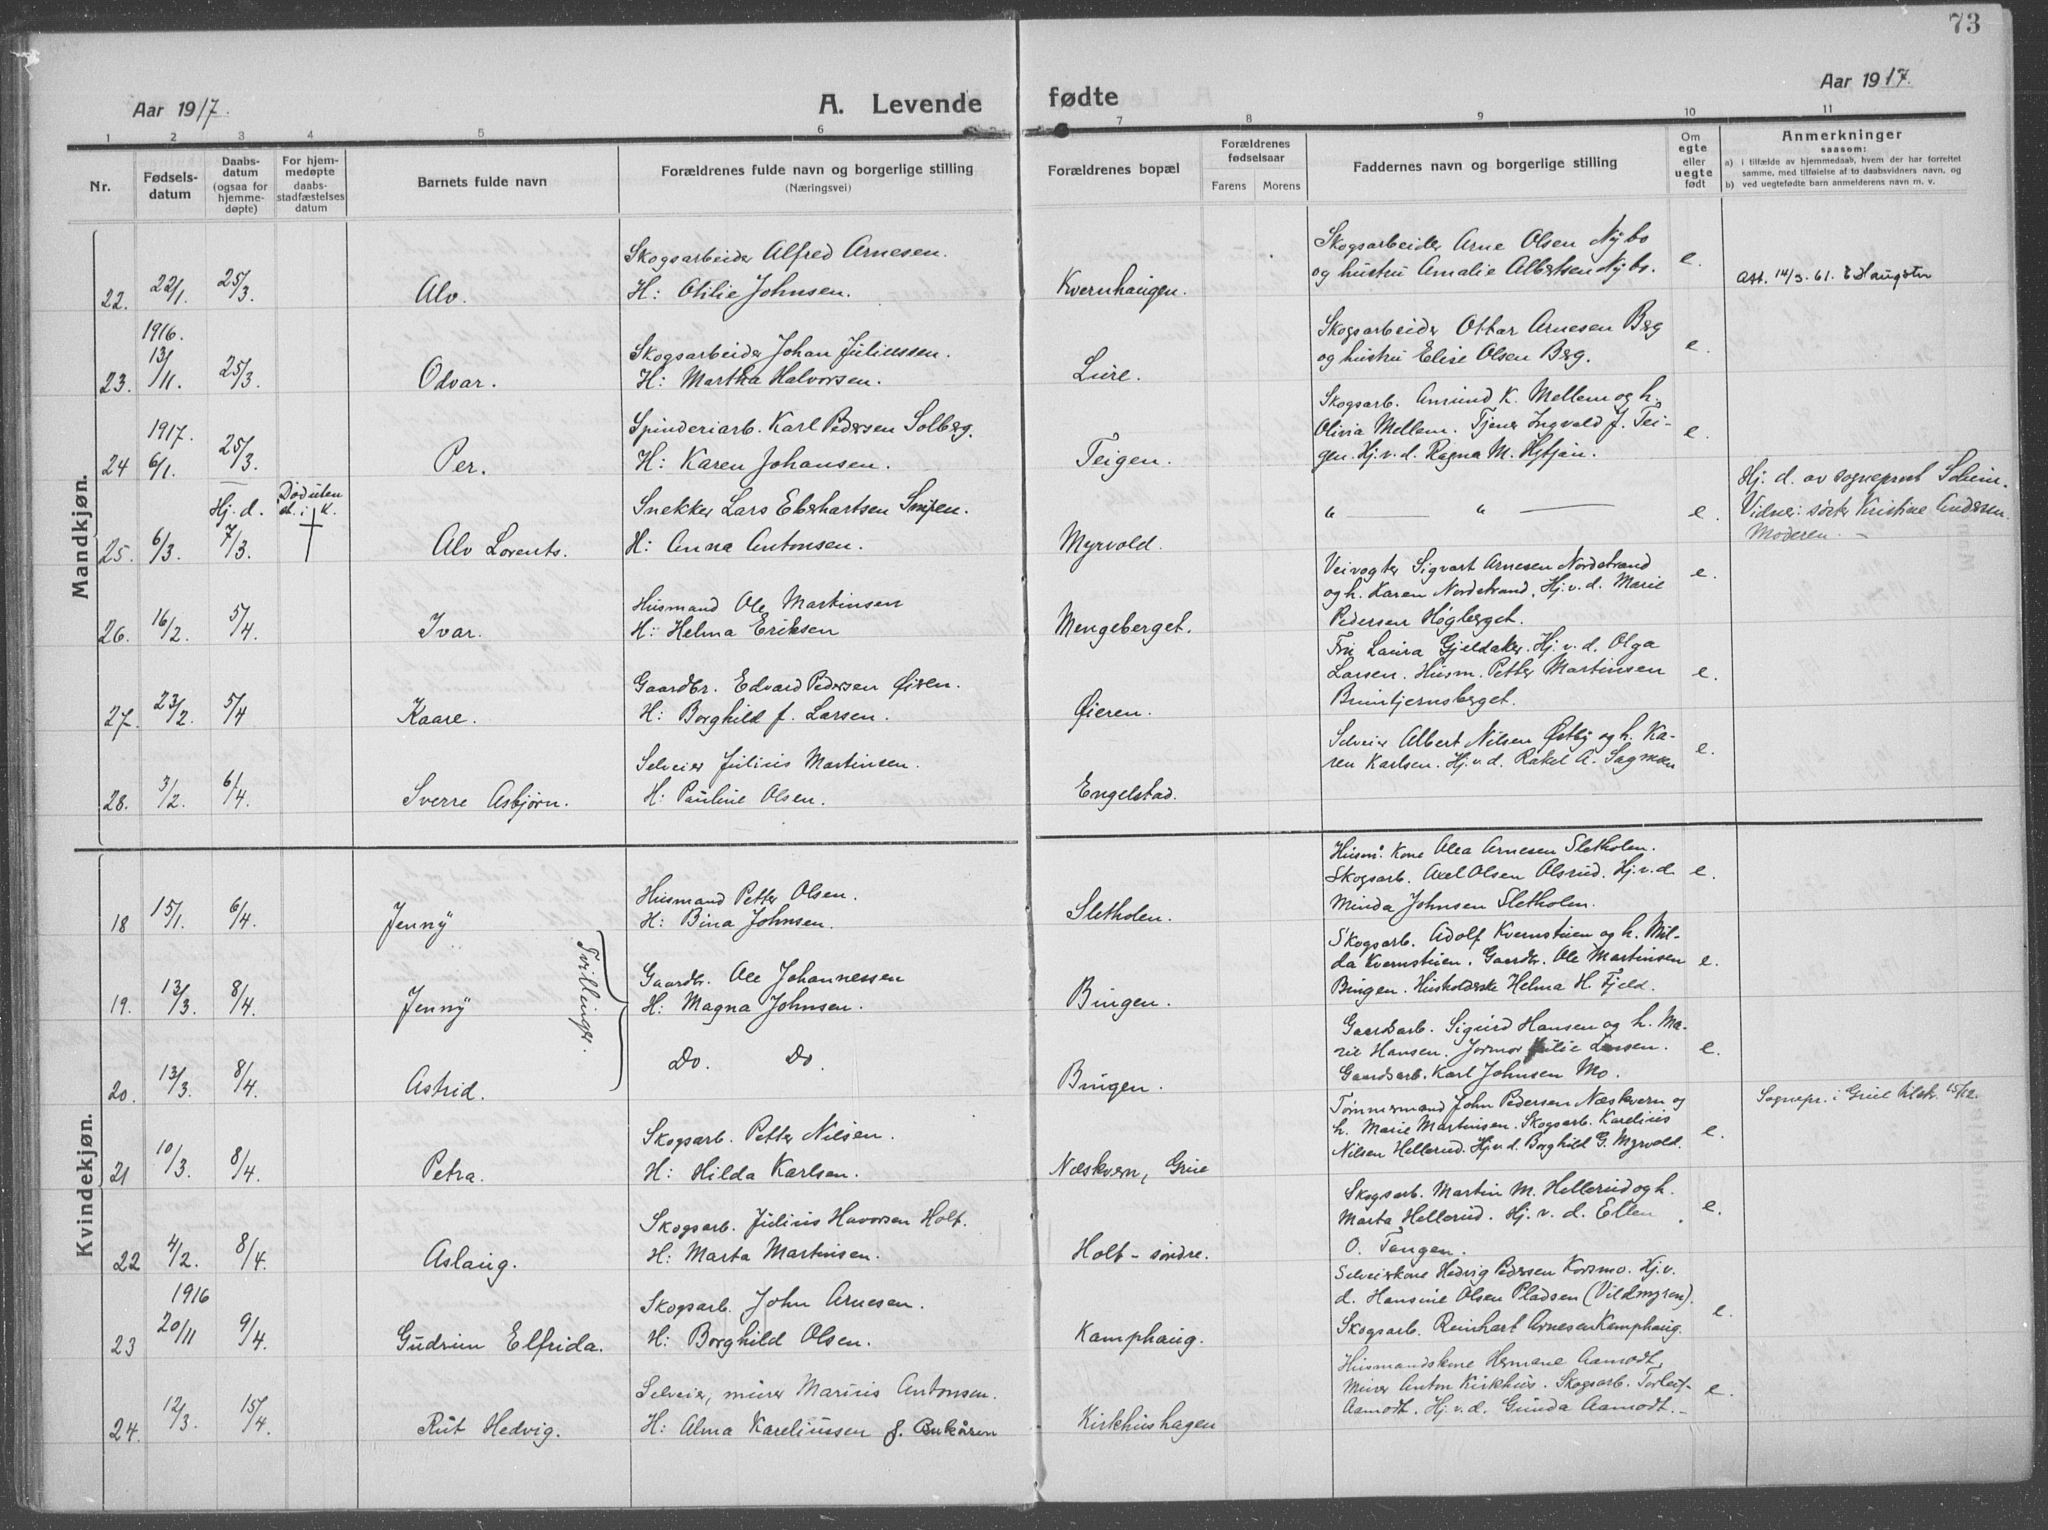 73
Aar 1917.
A. Levende
fødte
Aar 1917.
1 2 3 4 5 6 7 8 9 10 11
Nr.
Fødsels-
datum
Daabs-
datum
(ogsaa for
hjemme-
døpte)
For hjem-
medøpte
daabs-
stadfæstelses
datum
Barnets fulde navn
Forældrenes fulde navn og borgerlige stilling
(Næringsvei)
Forældrenes bopæl
Forældrenes
fødselsaar
Farens Morens
Faddernes navn og borgerlige stilling
Om
egte
eller
uegte
født
Anmerkninger
saasom:
a) i tilfælde av hjemmedaab, hvem der har forrettet
samme, med tilføielse af to daabsvidners navn, og
b) ved uegtefødte barn anmelderens navn m. v.
Mandkjøn.
Skogsarbeider Alfred Arnesen.
Skogsarbeider Arne Olsen Nybo
22. 22/1. 25/3. Alv. H: Otilie Johnsen. Kvernhaugen. og hustru Amalie Albertsen Nybo. e. Att. 14/3. 61. E Haugstn
1916.
Skogsarbeider Johan Juliussen.
Skogsarbeider Ottar Arnesen Berg
23. 13/11. 25/3. Odvar. H: Martha Halvorsen. Lure. og hustru Elise Olsen Berg. e.
1917.
Spinderiarb. Karl Pedersen Solberg.
Skogsarb. Amund K. Mellem og h.
Olivia Mellem. Tjener Ingvald J. Tei-
24 6/1. 25/3. Per. H: Karen Johansen. Teigen. gen. Hj.v.d. Ragna M. Hitjan. e.
Hj. d. Død uten st. i K.
Snekker Lars Eberhartsen Smpen.
" — " — e.
Hj. d. av sogneprest Solheim.
Vidner: søster Kristine Andersen
Moderen. —
25. 6/3. 7/3. † Alv Lorents. H: Anna Antonsen. Myrvold.
Husmand Ole Martinsen
Veivogter Sigvart Arnesen Nordstrand
og h. Karen Nordstrand. Hj.v.d. Marie
26. 16/2. 5/4. Ivar. H: Helma Eriksen Mengeberget. Pedersen Høgberget. e.
Gaardbr. Edvard Pedersen Øiren.
Fru Laura Gjeldaker. Hj.v.d. Olga
Larsen. Husm. Petter Martinsen
27. 23/2. 5/4 Kaare. H: Borghild f. Larsen. Øieren. Bruntjernsberget. e.
Selveier Julius Martinsen.
Selveier Albert Nilsen Østby og h. Ka-
ren Karlsen. Hj.v.d. Rakel A. Sagmoen
28. 3/2. 6/4. Sverre Asbjørn. H: Pauline Olsen. Engelstad. e.
Kvindekjøn.
Husmand Petter Olsen.
Husm. Kone Alea Arnesen Sletholen.
Skogsarb. Axel Olsen Olsrud. Hj.v.d.
18 15/1. 6/4. Jenny H: Bina Johnsen. Sletholen. Minda Johnsen Sletholen. e.
Tvillinger.
Gaardbr. Ole Johannessen
Skogsarb. Adolf Kvernstuen og h. Mil-
da Kvernstuen. Gaardbr. Ole Martinsen
19. 13/3. 8/4. Jenny H: Magna Johnsen. Bingen. Bingen. Husholderske Helma H. Fjeld. e.
Gaardsarb. Sigurd Hansen og h. Ma-
rie Hansen. Jormor Julie Larsen.
20. 13/3. 8/4. Astrid. Do. Do. Bingen. Gaardsarb. Karl Johnsen Mo. e.
Skogsarb. Petter Nilsen.
Tømmermand John Pedersen Næskvern og
h. Marie Martinsen. Skogsarb. Karelius
21 10/3. 8/4. Petra. H: Hilda Karlsen. Næskvern, Grue Nilsen Hellerud. Hj.v.d. Borghild G. Myrvold. e. Sognepr. i Grue tilskr. 15/12.
Skogsarb. Julius Havorsen Holt.
Skogsarb. Martin M. Hellerud og h.
Marta Hellerud. Hj. v. d. Ellen
22 4/2. 8/4. Aslaug. H: Marta Martinsen. Holt - søndre. O. Tangen. e.
1916
Skogsarb. John Arnesen.
Selveierkone Hedvig Pedersen Korsmo. Hj.v.
d. Hansine Olsen Pladsen (Vildmyren).
23 20/11 9/4. Gudrun Elfrida. H: Borghild Olsen. Kamphaug. Skogsarb. Reinhart Arnesen Kamphaug. e.
Selveier, murer Marius Antonsen.
Husmandskone Hermane Aamodt,
Murer Anton Kirkhus. Skogsarb. Torleif
24. 12/3. 15/4. Rut Hedvig. H: Alma Kareliussen f. Bukåsen Kirkhushagen Aamodt. Hj.v.d. Gunda Aamodt. — e.